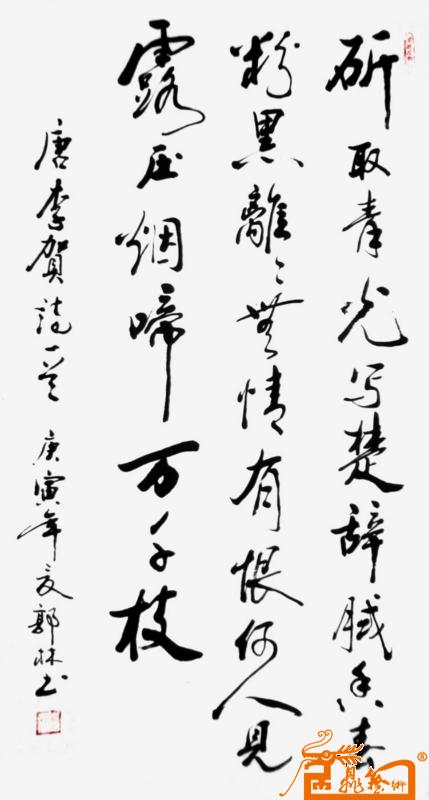 斫取青光写楚辞腻香春
粉黑離々無情有恨何人見
露压烟啼万千枝
唐李賀詩一首 庚寅年夏郭林书